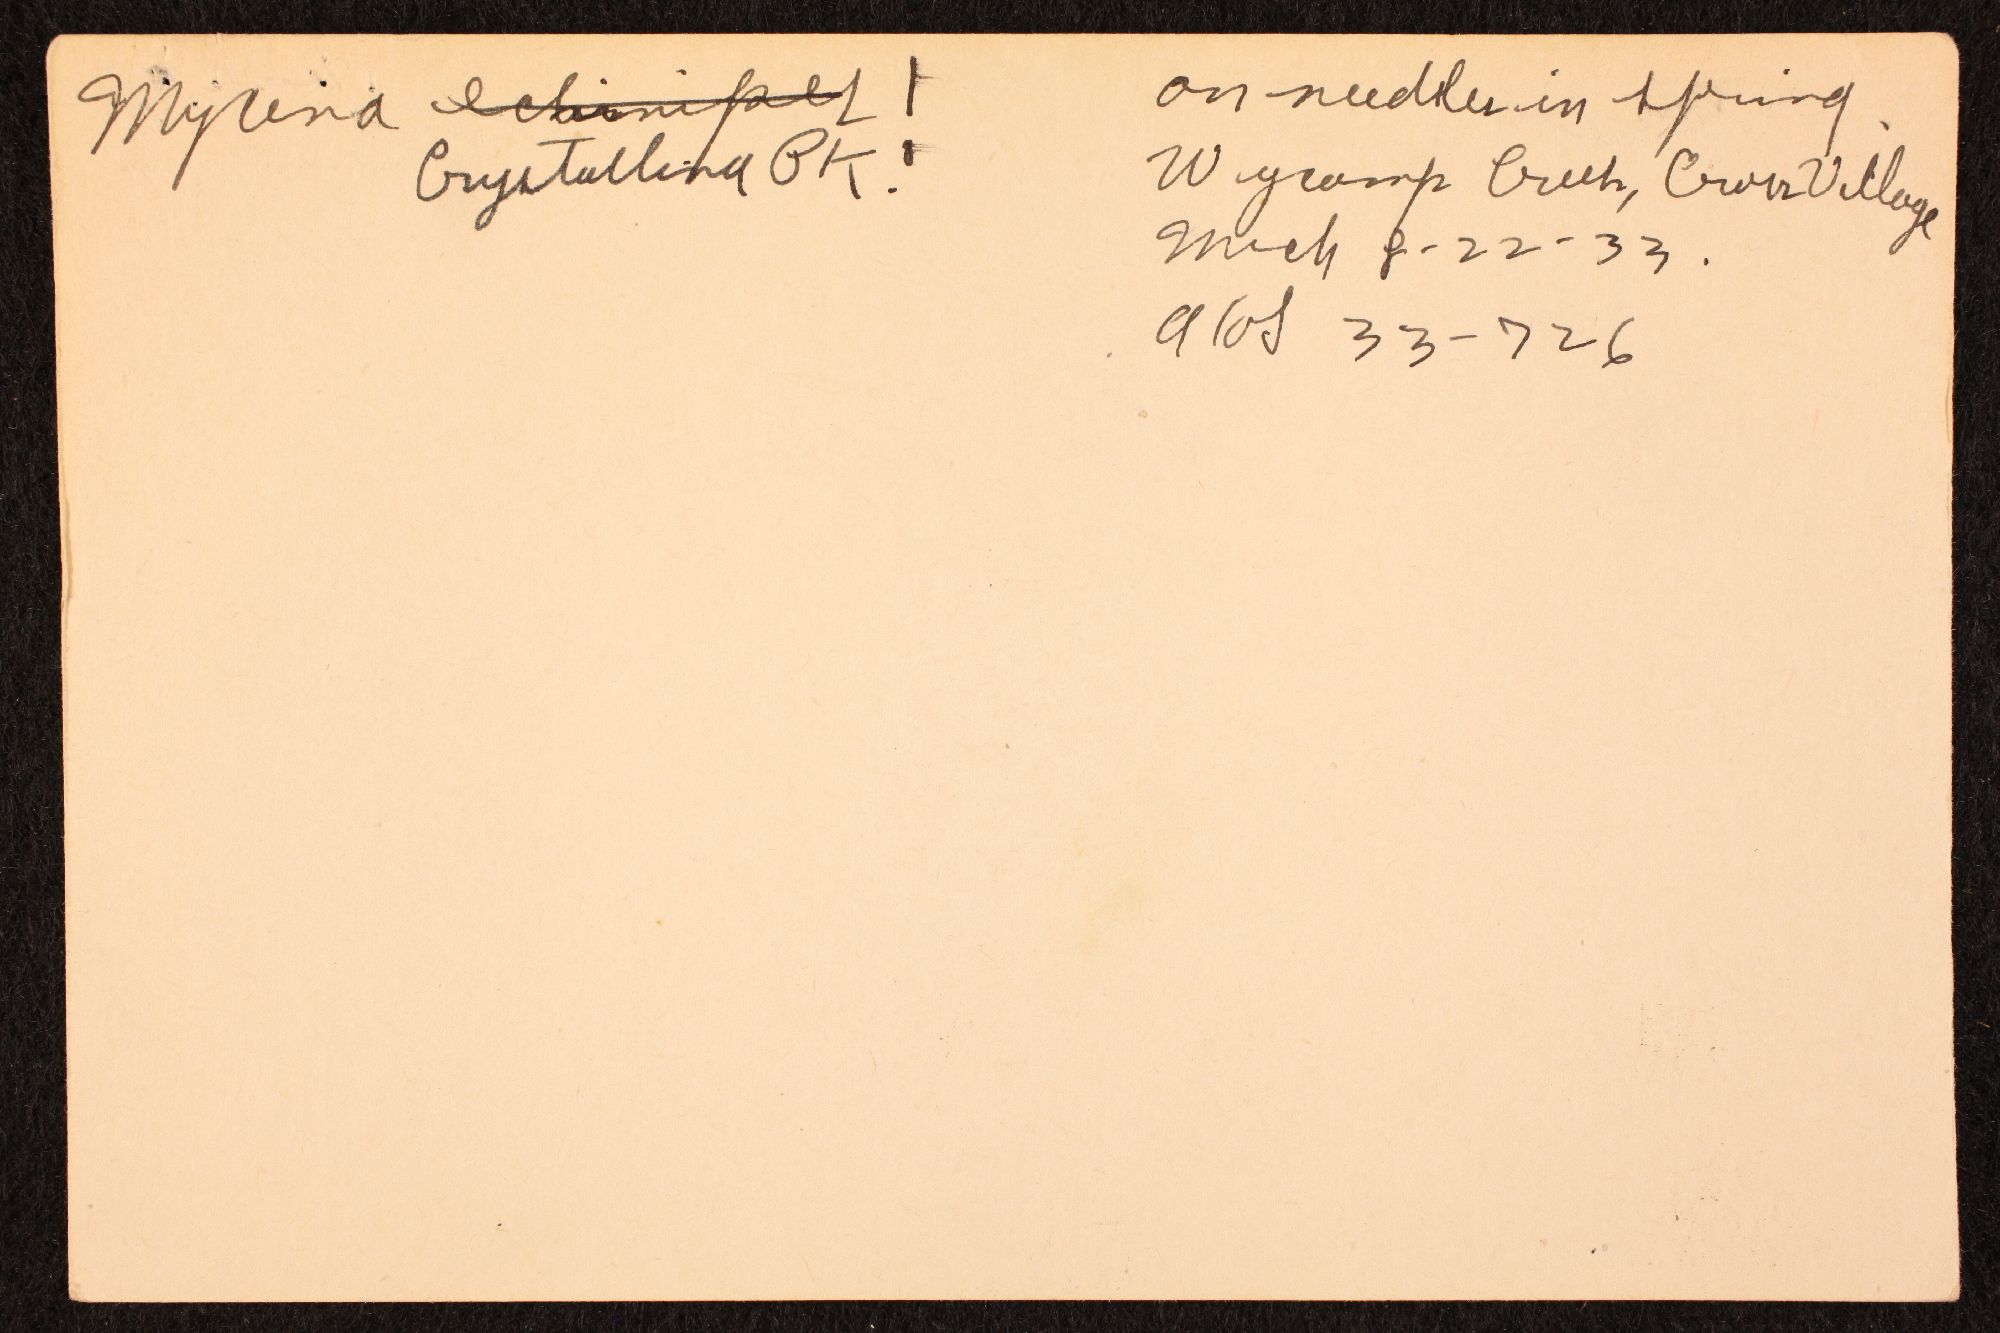 Mycena echinipes!
Crystallina PK.!
on needles in spring.
Wycamp Creek, Cross Village
Mich 8-22-33.
AHS 33-726